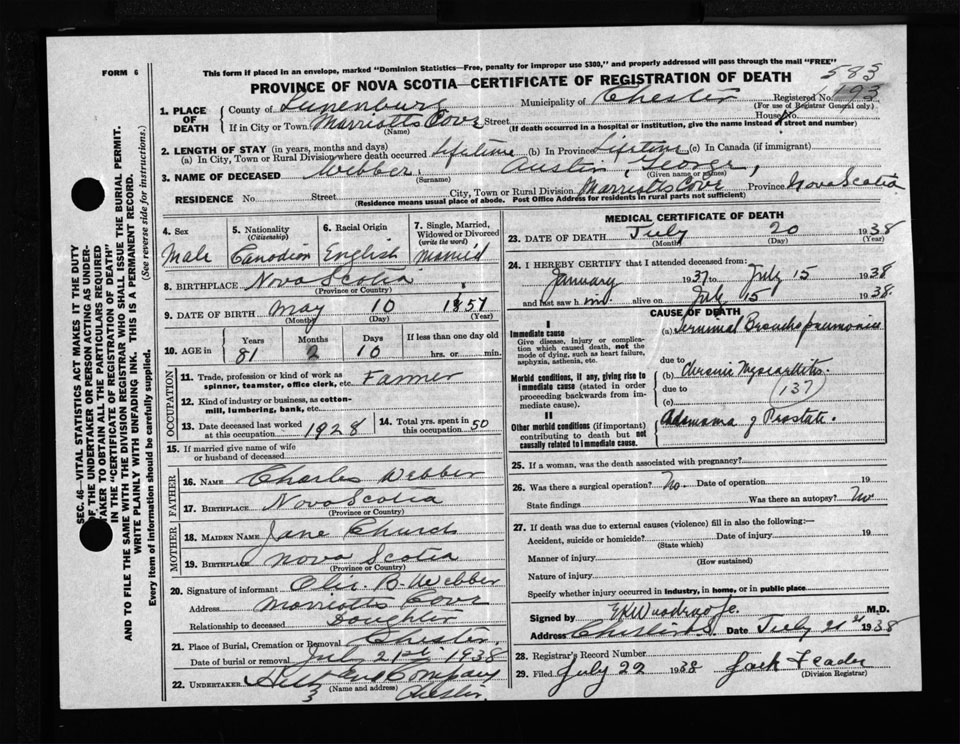 FORM 6
This form if placed in an envelope, marked "Dominion Statistics—Free, penalty for improper use $300," and properly addressed will pass through the mail "FREE"
PROVINCE OF NOVA SCOTIA—CERTIFICATE OF REGISTRATION OF DEATH
583
1. PLACE OF DEATH County of Lunenburg Municipality of Chester Registered No. 193
(For use of Registrar General only)
If in City or Town Marriotts Cove Street House No.
(Name) (If death occurred in a hospital or institution, give the name instead of street and number)
2. LENGTH OF STAY (in years, months and days)
(a) In City, Town or Rural Division where death occurred Lifetime (b) In Province Lifetime (c) In Canada (if immigrant)
3. NAME OF DECEASED Webber, Austin, George,
(Surname) (Given name or names)
RESIDENCE No. Street City, Town or Rural Division Marriotts Cove Province Nova Scotia
(Residence means usual place of abode. Post Office Address for residents in rural parts not sufficient)
4. Sex 5. Nationality (Citizenship) 6. Racial Origin 7. Single, Married, Widowed or Divorced (write the word)
Male Canadian English Married
8. BIRTHPLACE Nova Scotia
(Province or Country)
9. DATE OF BIRTH May 10 1857
(Month) (Day) (Year)
10. AGE in Years Months Days If less than one day old
81 2 10 hrs. or min.
OCCUPATION
11. Trade, profession or kind of work as spinner, teamster, office clerk, etc. Farmer
12. Kind of industry or business, as cotton-mill, lumbering, bank, etc.
13. Date deceased last worked at this occupation 1928 14. Total yrs. spent in this occupation 50
15. If married give name of wife or husband of deceased
FATHER
16. NAME Charles Webber
17. BIRTHPLACE Nova Scotia
(Province or Country)
MOTHER
18. MAIDEN NAME Jane Church
19. BIRTHPLACE Nova Scotia
(Province or Country)
20. Signature of informant B. Webber
Address Marriotts Cove
Relationship to deceased Daughter
21. Place of Burial, Cremation or Removal Chester.
Date of burial or removal July 21st 1938
22. UNDERTAKER Company
(Name and address)
MEDICAL CERTIFICATE OF DEATH
23. DATE OF DEATH July 20 1938
(Month) (Day) (Year)
24. I HEREBY CERTIFY that I attended deceased from:
January 1937 to July 15 1938
and last saw h im alive on July 15 1938.
CAUSE OF DEATH
I
Immediate cause
Give disease, injury or complication which caused death, not the mode of dying, such as heart failure, asphyxia, asthenia, etc.
(a) Terminal Bronchopneumonia
due to
Morbid conditions, if any, giving rise to immediate cause (stated in order proceeding backwards from immediate cause).
(b) Chronic Myocarditis
due to (137)
(c)
II
Other morbid conditions (if important) contributing to death but not causally related to immediate cause.
Adenoma of Prostate.
25. If a woman, was the death associated with pregnancy?
26. Was there a surgical operation? No. Date of operation 19
State findings Was there an autopsy? No
27. If death was due to external causes (violence) fill in also the following:—
Accident, suicide or homicide? Date of injury 19
(State which)
Manner of injury
(How sustained)
Nature of injury
Specify whether injury occurred in industry, in home, or in public place
Signed by M.D.
Address Date July 21st 1938
28. Registrar's Record Number
29. Filed July 22 1938 Jack
(Division Registrar)
SEC. 46—VITAL STATISTICS ACT MAKES IT THE DUTY
OF THE UNDERTAKER OR PERSON ACTING AS UNDER-
TAKER TO OBTAIN ALL THE PARTICULARS REQUIRED
IN THE "CERTIFICATE OF REGISTRATION OF DEATH"
AND TO FILE THE SAME WITH THE DIVISION REGISTRAR WHO SHALL ISSUE THE BURIAL PERMIT.
WRITE PLAINLY WITH UNFADING INK. THIS IS A PERMANENT RECORD.
Every item of information should be carefully supplied. (See reverse side for instructions.)